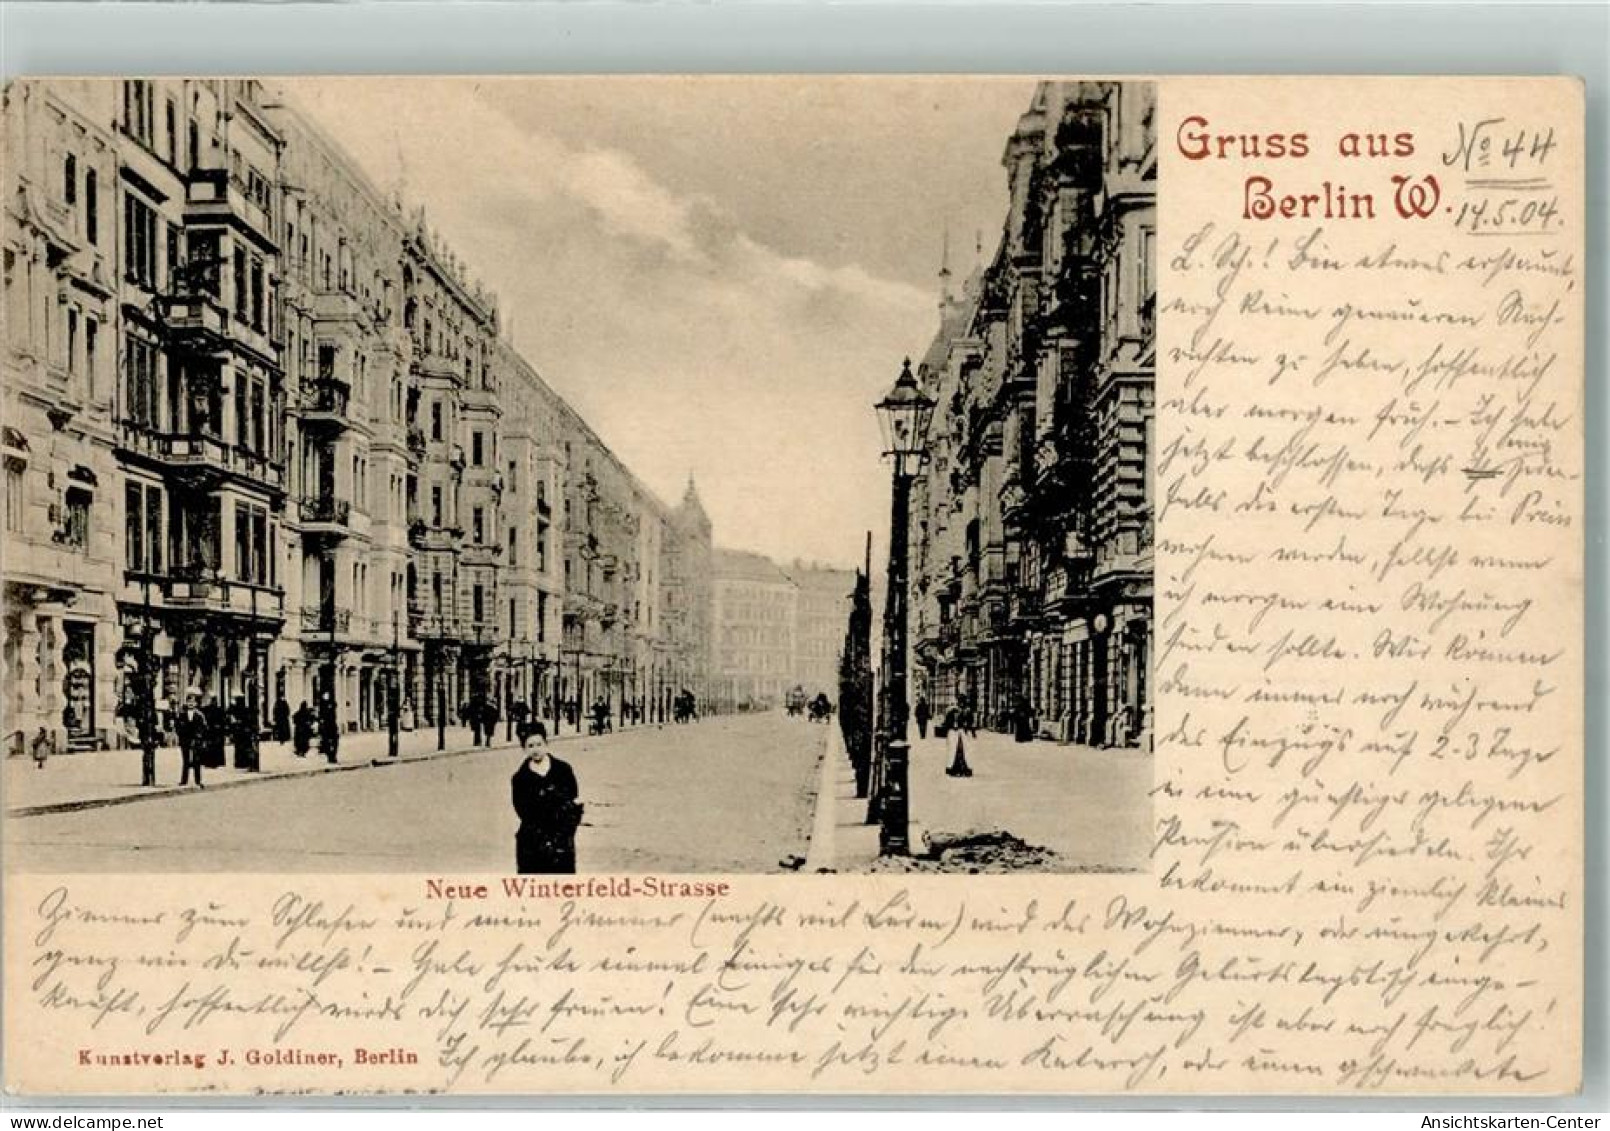 Gruss aus
Berlin W.
No 44
14.5.04.
L. Sch.! Bin etwas erstaunt,
noch keine genaueren Nach-
richten zu haben, hoffentlich
aber morgen früh. - Ich habe
jetzt beschlossen, dass wir jeden-
falls die ersten Tage bei
wohnen werden, selbst wenn
ich morgen eine Wohnung
finden sollte. Wir können
dann immer noch während
des Einzugs auf 2-3 Tage
in eine günstiger gelegene
Pension übersiedeln. Ihr
bekommet ein ziemlich kleines
Zimmer zum Schlafen und mein Zimmer (nachts viel Lärm) wird das Wohnzimmer, oder umgekehrt,
ganz wie Du willst! - Habe heute einmal Einiges für den nachträglichen Geburtstagstisch einge-
kauft, hoffentlich wirds dich sehr freuen! Eine sehr wichtige Überraschung ist aber noch fraglich!
Ich glaube, ich bekomme jetzt einen Katarrh, oder einen
Neue Winterfeld-Strasse
Kunstverlag J. Goldiner, Berlin
Ansichtskarten-Center